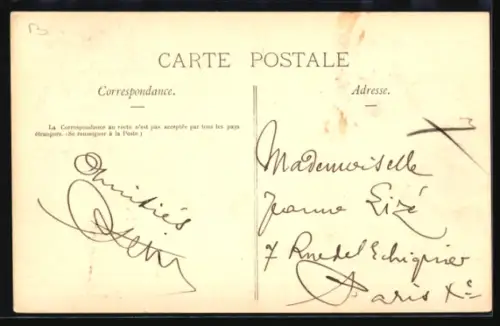 CARTE POSTALE
Correspondance.
Adresse.
La Correspondance au recto n'est pas acceptée par tous les pays
étrangers. (Se renseigner à la Poste)
Amitiés
Mademoiselle
Jeanne Lizé
7 Rue de l'Echiquier
Paris Xe